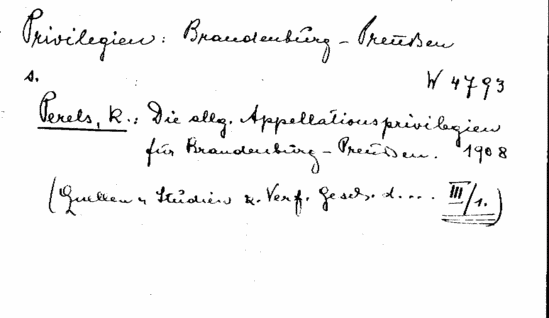 Privilegien: Brandenburg-Preußen
s.
W 4793
Perels, K.: Die allg. Appellationsprivilegien
für Brandenburg-Preußen. 1908
(Quellen u Studien z. Verf. Gesch. d.... III/1.)